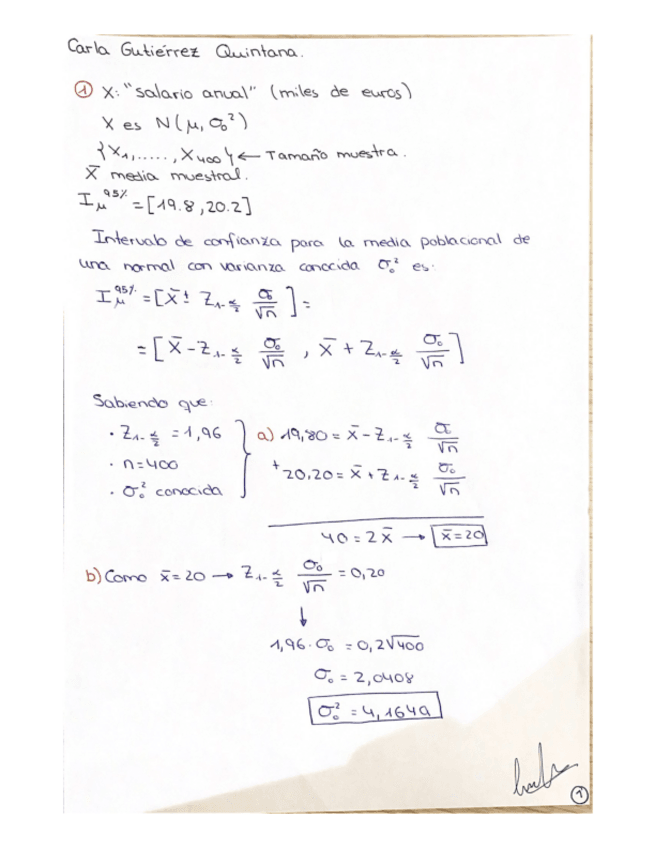 Carla Gutiérrez Quintana.
① X: "salario anual" (miles de euros)
X es N(μ, σ₀²)
{X₁, ....., X₄₀₀} ← Tamaño muestra.
X̄ media muestral.
I_μ^95% = [19.8, 20.2]
Intervalo de confianza para la media poblacional de
una normal con varianza conocida σ₀² es:
I_μ^95% = [X̄ ± Z_{1-α/2} σ₀/√n] =
= [X̄ - Z_{1-α/2} σ₀/√n , X̄ + Z_{1-α/2} σ₀/√n]
Sabiendo que:
· Z_{1-α/2} = 1,96
· n = 400
· σ₀² conocida
a) 19,80 = X̄ - Z_{1-α/2} σ/√n
+ 20,20 = X̄ + Z_{1-α/2} σ₀/√n
40 = 2X̄ → x̄ = 20
b) Como x̄ = 20 → Z_{1-α/2} σ₀/√n = 0,20
↓
1,96 · σ₀ = 0,2√400
σ₀ = 2,0408
σ₀² = 4,1649
①